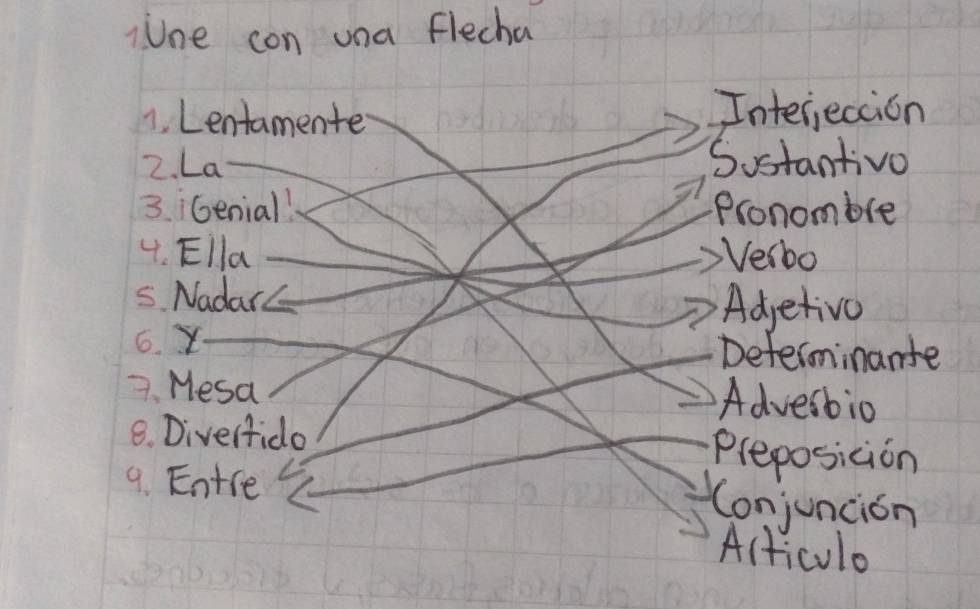 1. Une con una flecha
1. Lentamente
2. La
3. ¡Genial!
4. Ella
5. Nadar
6. Y
7. Mesa
8. Divertido
9. Entre
Interjección
Sustantivo
Pronombre
Verbo
Adjetivo
Determinante
Adverbio
Preposición
Conjunción
Articulo